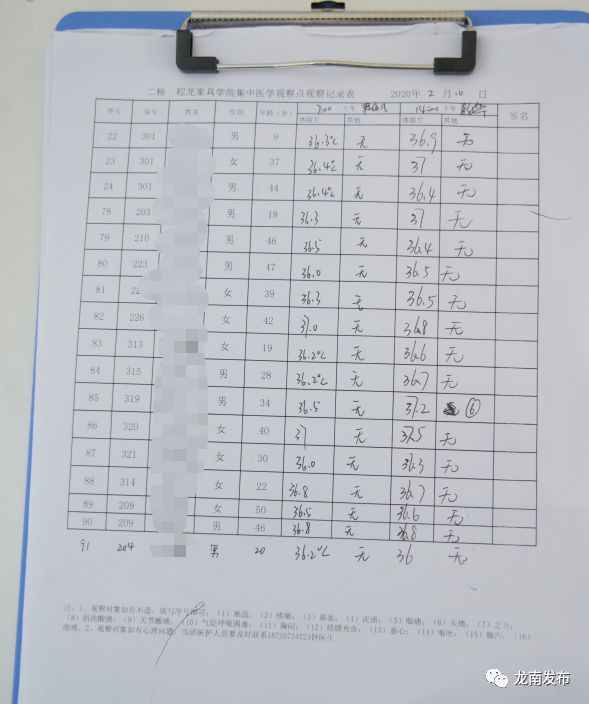 二栋 程龙家具学院集中医学观察点观察记录表 2020年 2 月 10 日
序号 床号 姓名 性别 年龄(岁) 7:00 上午 14:00 下午 签名
体温℃ 其他 体温℃ 其他
22 301 男 9 36.3℃ 无 36.9 无
23 301 女 37 36.4℃ 无 37 无
24 301 男 44 36.4℃ 无 36.4 无
78 203 男 18 36.3 无 37 无
79 210 男 46 36.5 无 36.4 无
80 223 男 47 36.0 无 36.5 无
81 女 39 36.3 无 36.5 无
82 226 女 42 37.0 无 36.8 无
83 313 女 19 36.2℃ 无 36.6 无
84 315 男 28 36.2℃ 无 36.7 无
85 319 男 34 36.5 无 37.2 ⑥
86 320 女 40 37 无 37.5 无
87 321 女 30 36.0 无 36.3 无
88 314 女 22 36.8 无 36.7 无
89 209 女 50 36.5 无 36.6 无
90 209 男 46 36.8 无 36.8 无
91 204 男 20 36.2℃ 无 36 无
注:1、观察对象如有不适,填写序号即可:(1)寒战;(2)咳嗽;(3)鼻塞;(4)流涕;(5)咽痛;(6)头痛;(7)乏力;
(8)肌肉酸痛;(9)关节酸痛;(10)气促呼吸困难;(11)胸闷;(12)结膜充血;(13)恶心;(14)呕吐;(15)腹泻;(16)
腹痛。2、观察对象如有心理问题,当班医护人员要及时联系18720734723钟医生
龙南发布